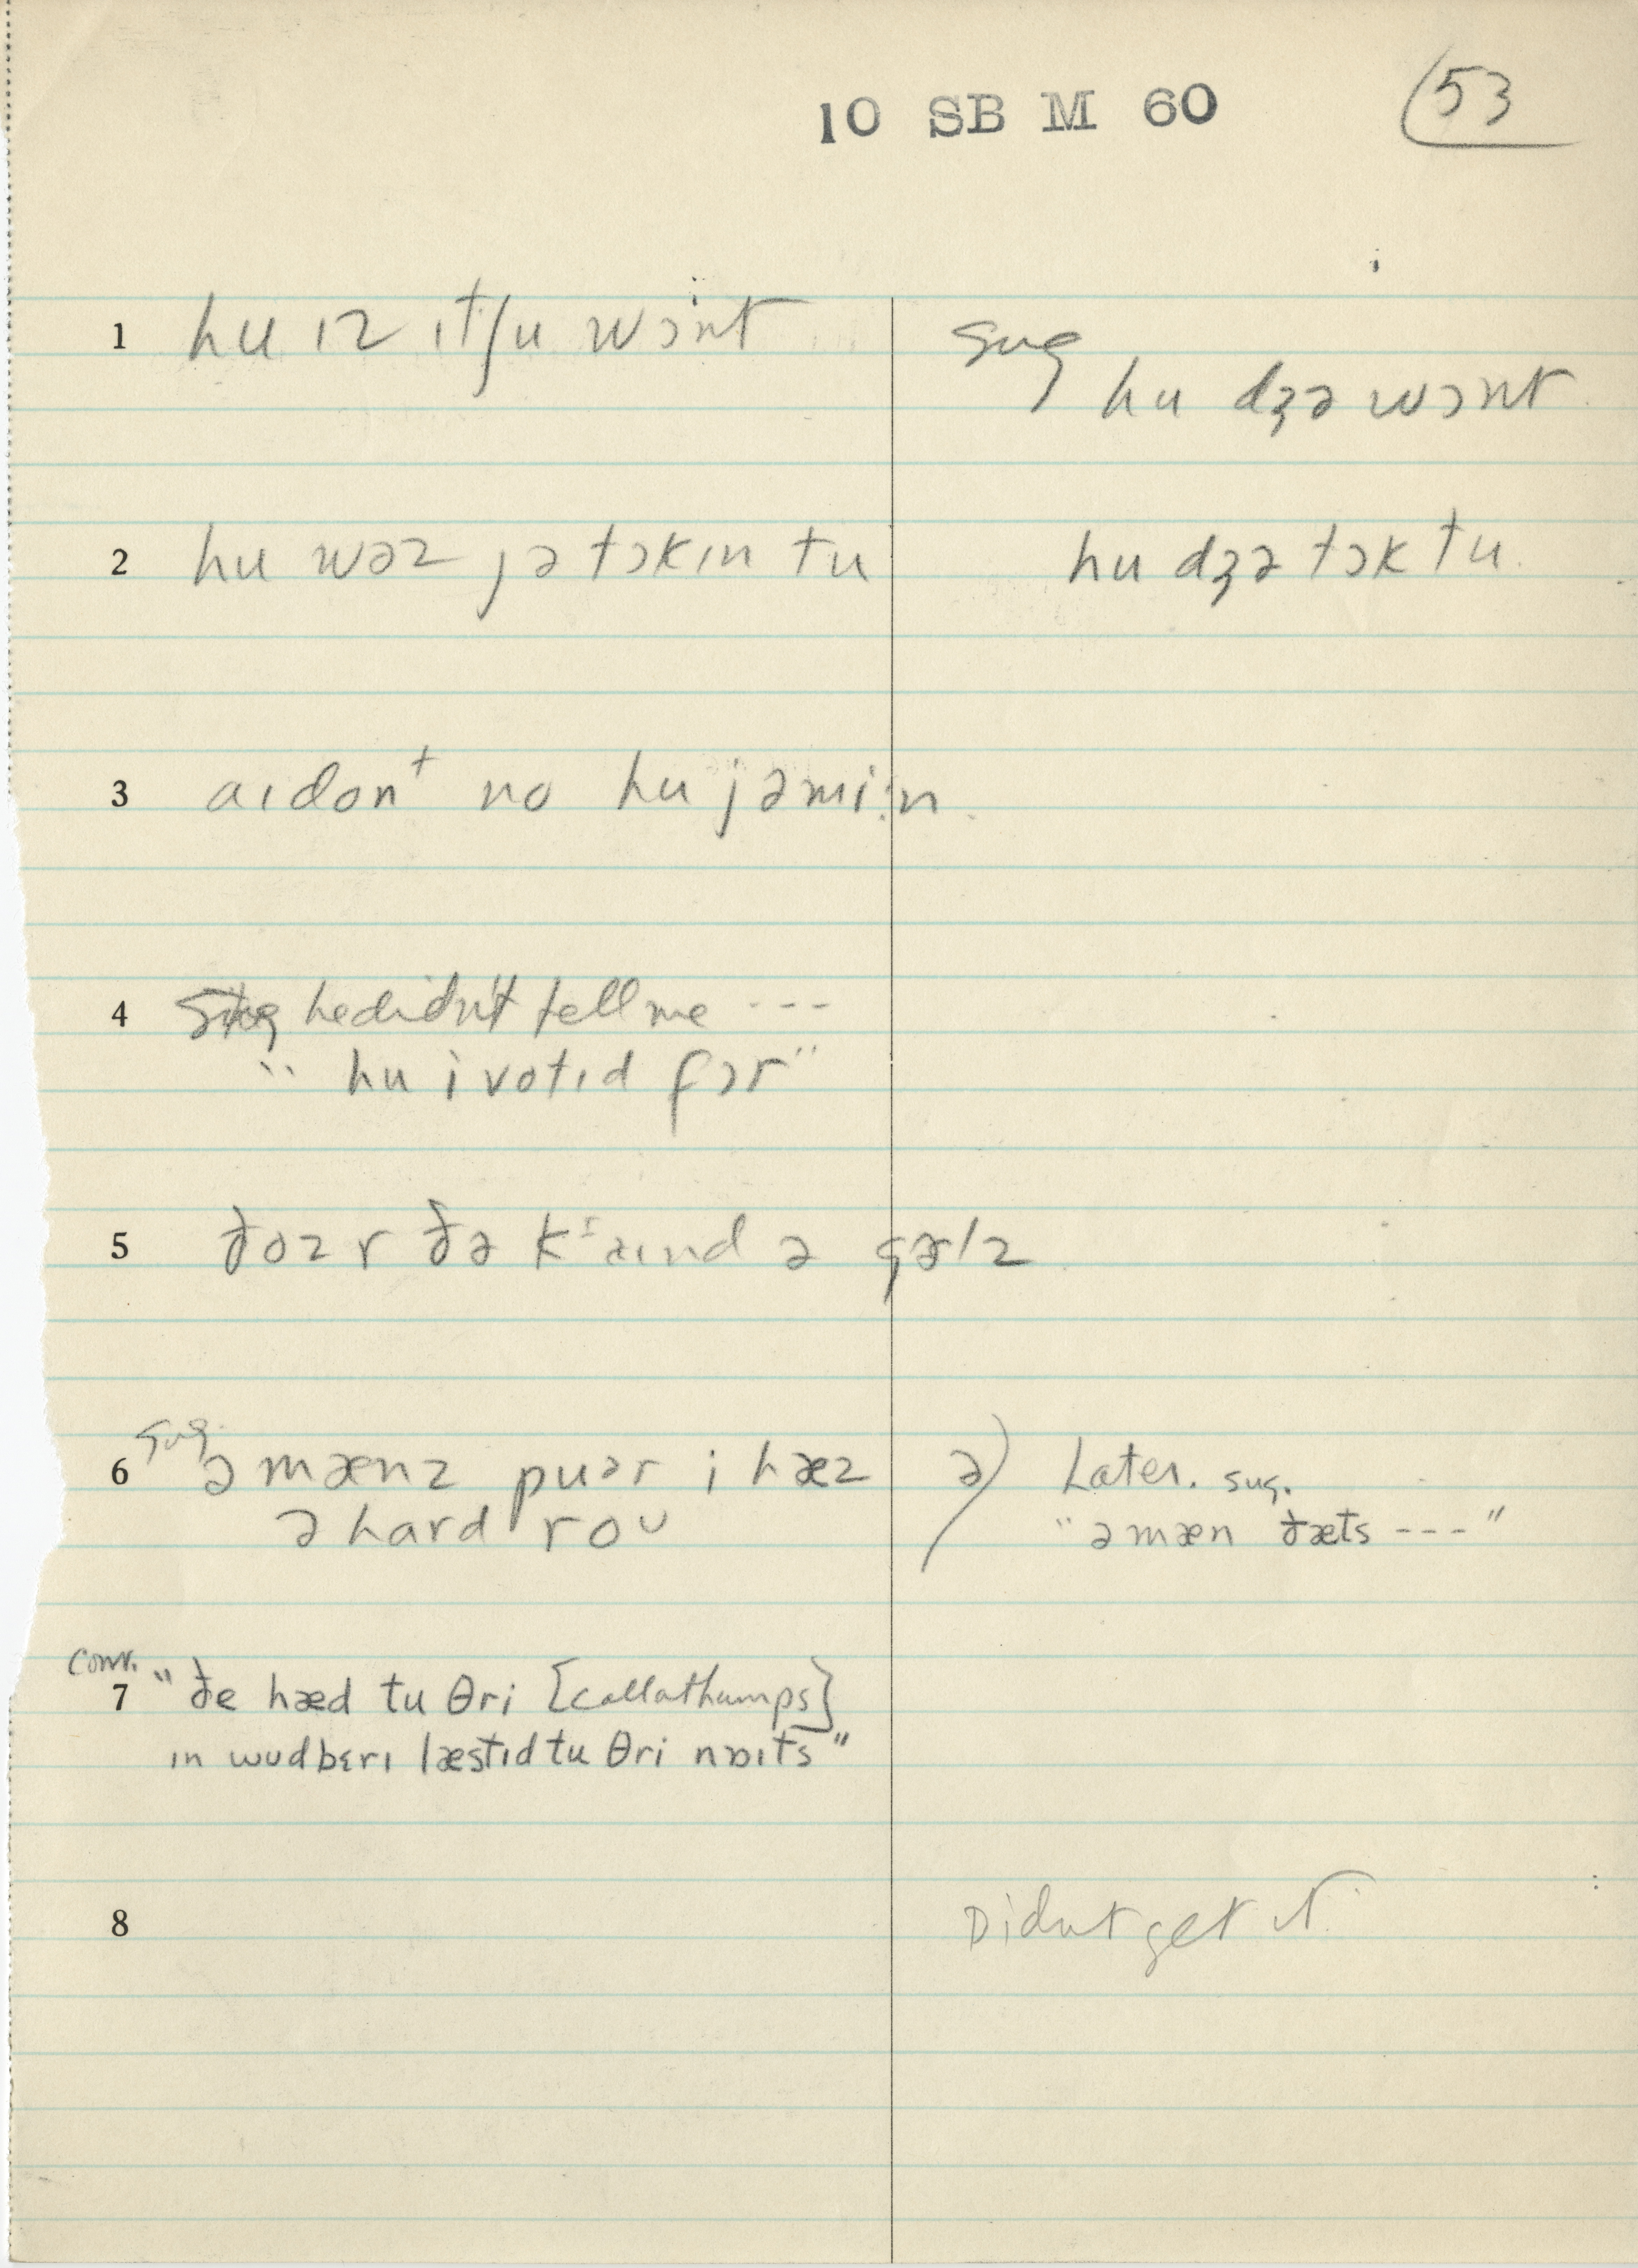 10 SB M 60
53
1 hu ɪz ɪtʃu wɔnt
sug
hu dʒə wɔnt
2 hu wəz jə tɔkɪn tu
hu dʒə tɔk tu
3 aɪ dont no hu jə mi:n
4 Sug he didn't tell me ---
" hu i votɪd fɔr"
5 ðoz r ðə kaɪnd ə gərlz
sug
6 ə mænz puər i hæz
ə hard roʊ
ə) Later. sug.
"ə mæn ðæts ---"
conv.
7 "ðe hæd tu θri [callathumps]
ɪn wudbɛrɪ læstɪd tu θri nɒɪts"
8 Didnt get it.